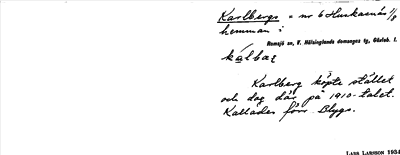 Karlbergs = nr 6 Huskasnäs 1/8
hemman i
Ramsjö sn, V. Hälsinglands domsagas tg, Gävleb. l.
kálbaz
Karlberg köpte stället
och dog där på 1910-talet.
Kallades förr Blygs.
LARS LARSSON 1934